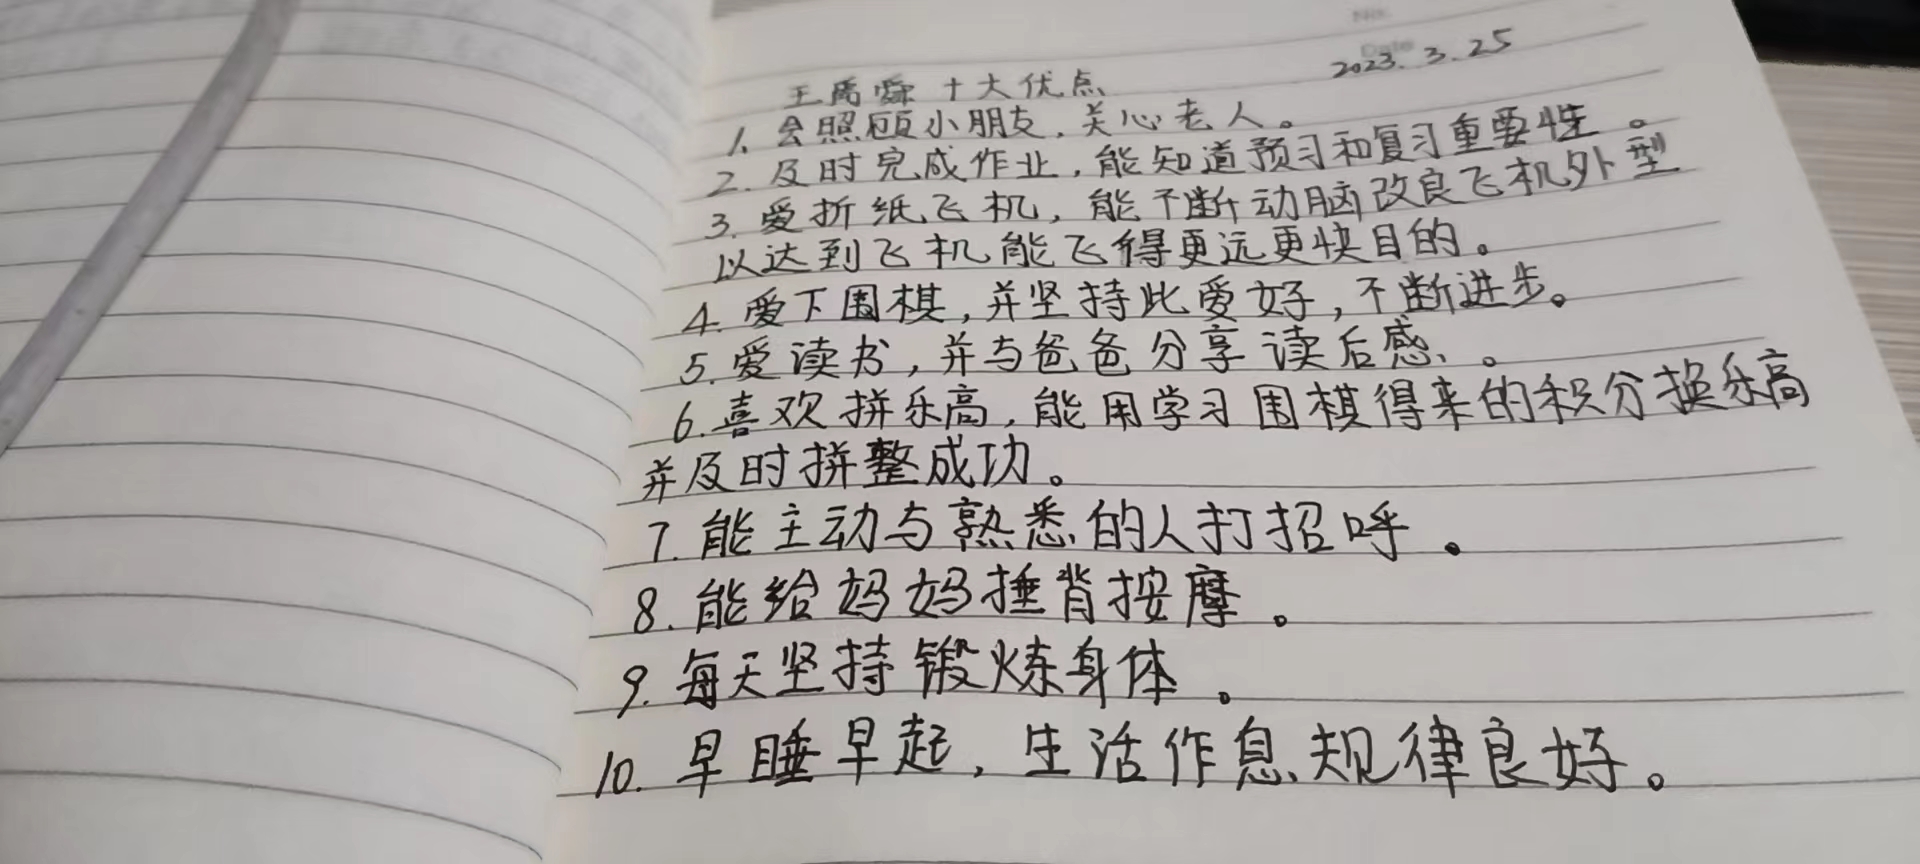 2023.3.25
王禹舜 十大优点
1. 会照顾小朋友，关心老人。
2. 及时完成作业，能知道预习和复习重要性。
3. 爱折纸飞机，能不断动脑改良飞机外型
以达到飞机能飞得更远更快目的。
4. 爱下围棋，并坚持此爱好，不断进步。
5. 爱读书，并与爸爸分享读后感。
6. 喜欢拼乐高，能用学习围棋得来的积分换乐高
并及时拼整成功。
7. 能主动与熟悉的人打招呼。
8. 能给妈妈捶背按摩。
9. 每天坚持锻炼身体。
10. 早睡早起，生活作息规律良好。